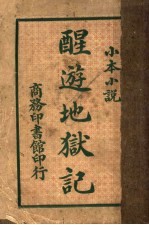 小本小說
醒遊地獄記
商務印書館印行